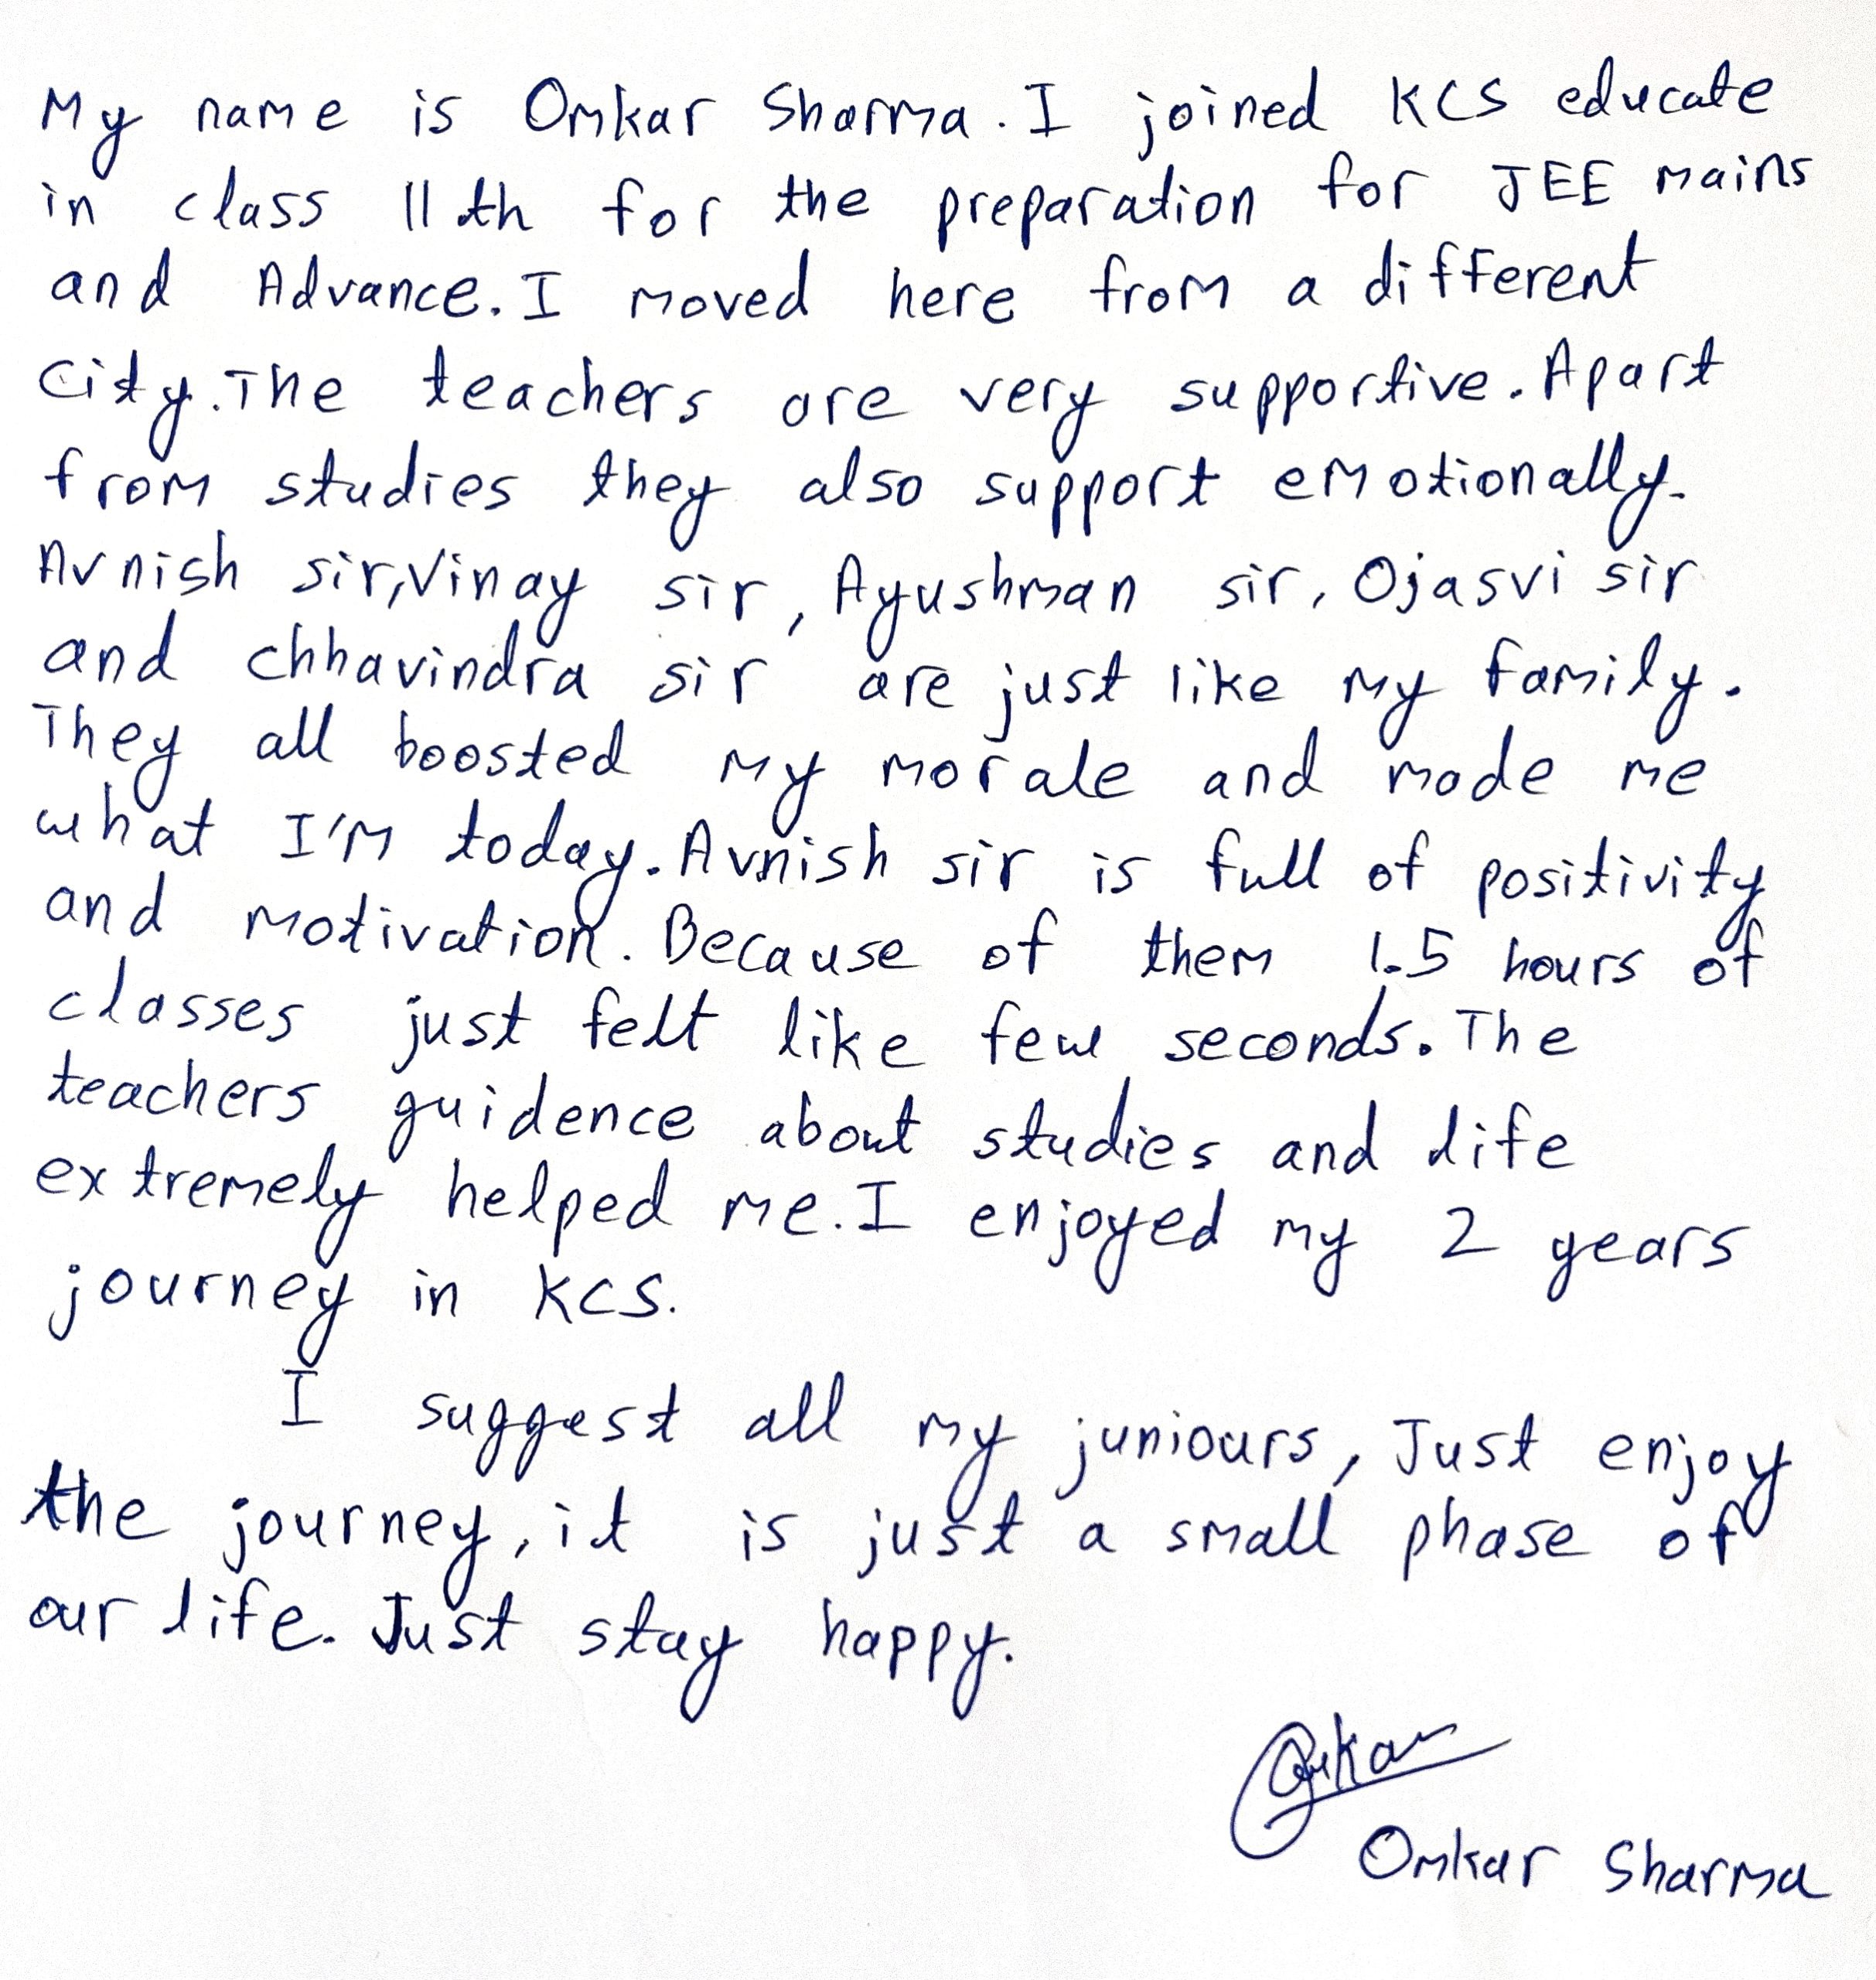 My name is Omkar Sharma. I joined KCS educate
in class 11th for the preparation for JEE mains
and Advance. I moved here from a different
city. The teachers are very supportive. Apart
from studies they also support emotionally.
Avnish sir, Vinay sir, Ayushman sir, Ojasvi sir
and chhavindra sir are just like my family.
They all boosted my morale and made me
what I'm today. Avnish sir is full of positivity
and motivation. Because of them 1.5 hours of
classes just felt like few seconds. The
teachers guidence about studies and life
extremely helped me. I enjoyed my 2 years
journey in KCS.
I suggest all my juniours, Just enjoy
the journey, it is just a small phase of
our life. Just stay happy.
Omkar
Omkar Sharma